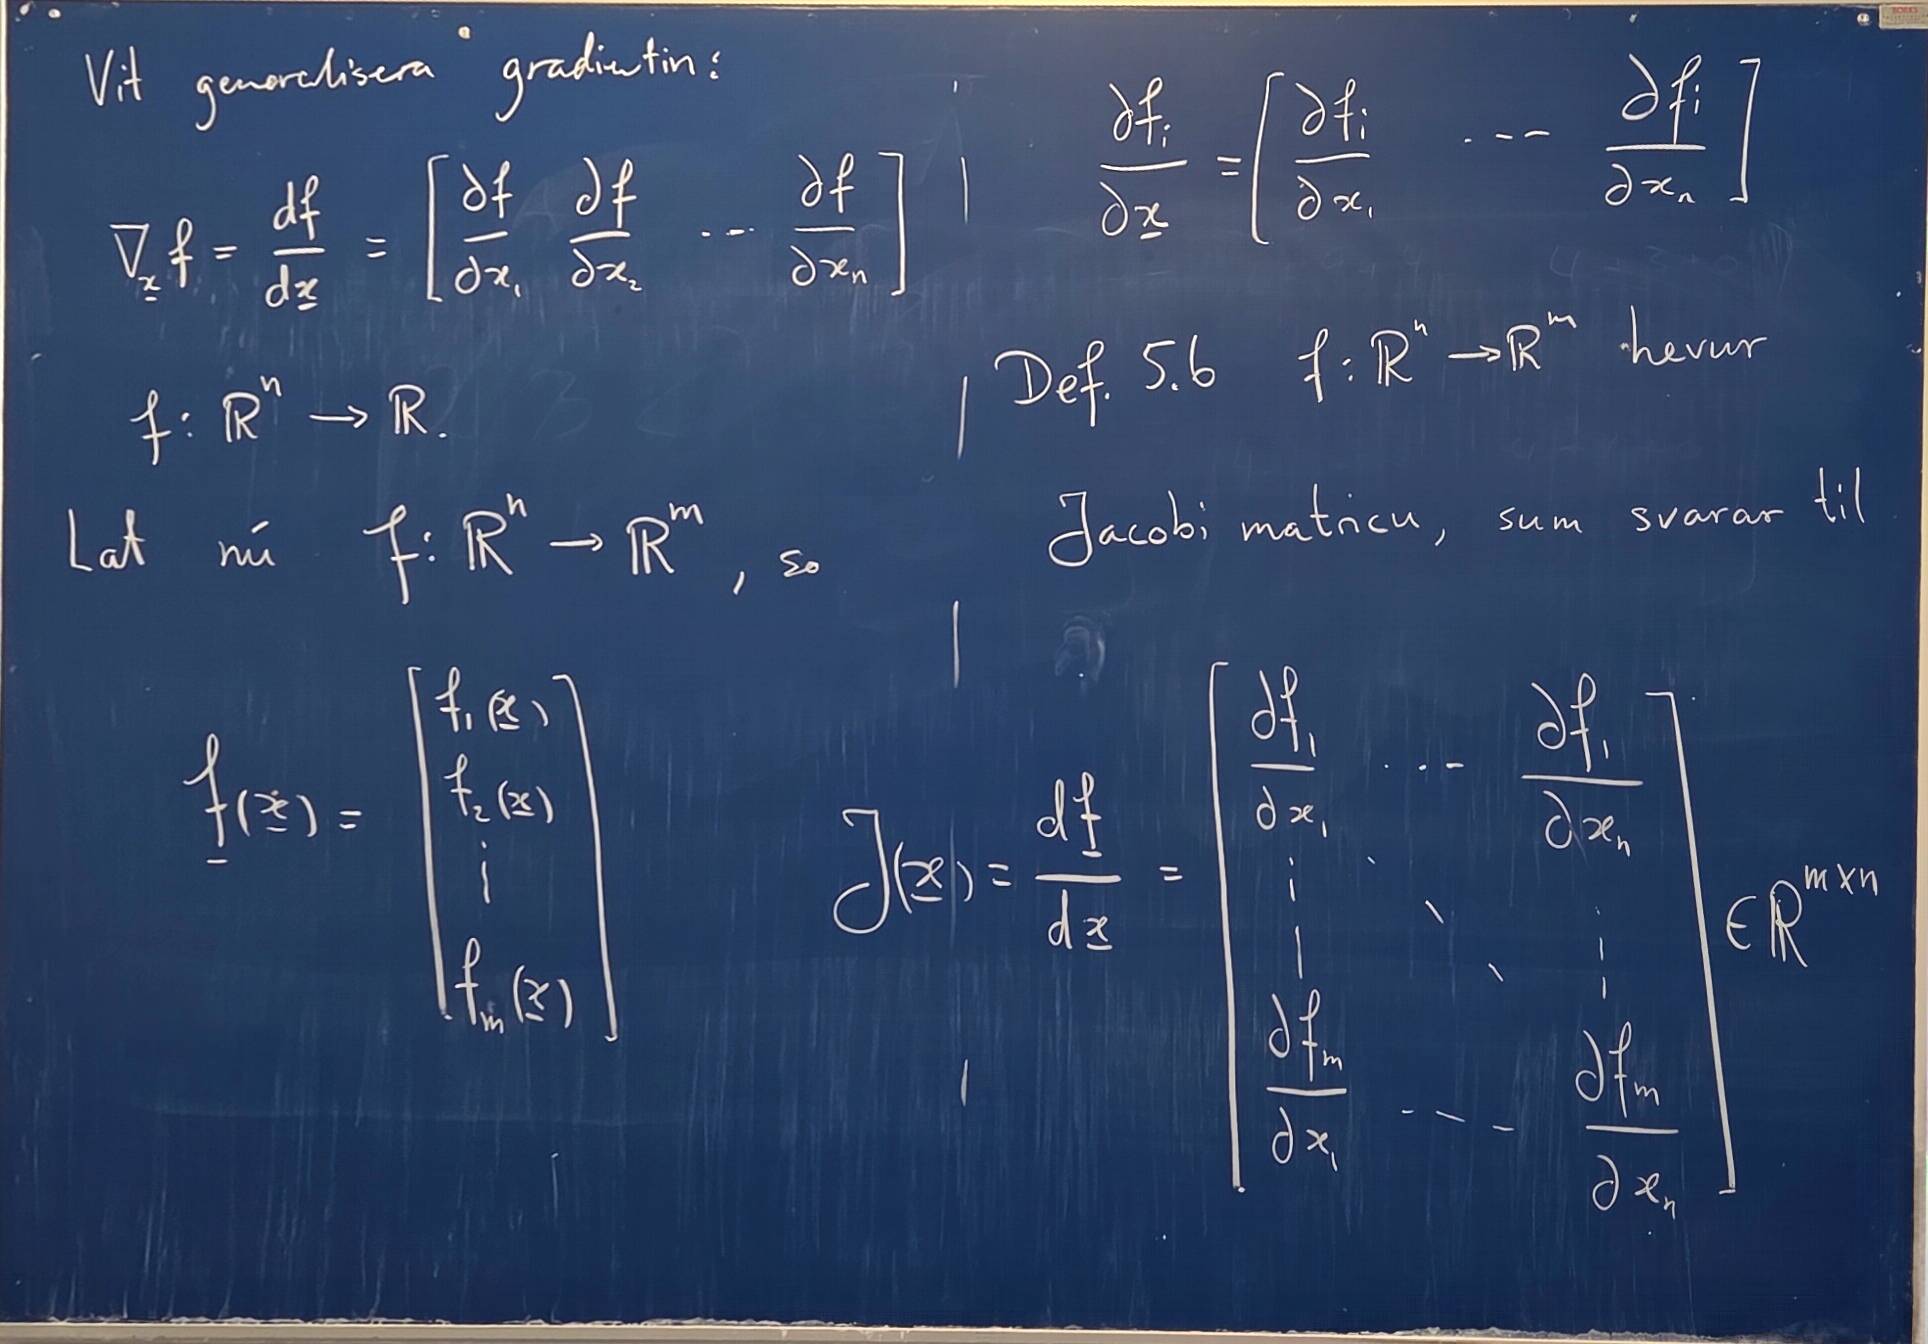 Vit generalisera gradientin:
∇_x̲ f = df/dx̲ = [∂f/∂x₁ ∂f/∂x₂ ... ∂f/∂xₙ]
f: ℝⁿ → ℝ.
Lat nú f: ℝⁿ → ℝᵐ, so
f̲(x̲) = [f₁(x̲) f₂(x̲) ⋮ fₘ(x̲)]
∂fᵢ/∂x̲ = [∂fᵢ/∂x₁ ... ∂fᵢ/∂xₙ]
Def. 5.6 f: ℝⁿ → ℝᵐ hevur
Jacobi matricu, sum svarar til
J(x̲) = df̲/dx̲ = [∂f₁/∂x₁ ... ∂f₁/∂xₙ ⋮ ⋱ ⋮ ∂fₘ/∂x₁ ... ∂fₘ/∂xₙ] ∈ ℝᵐˣⁿ